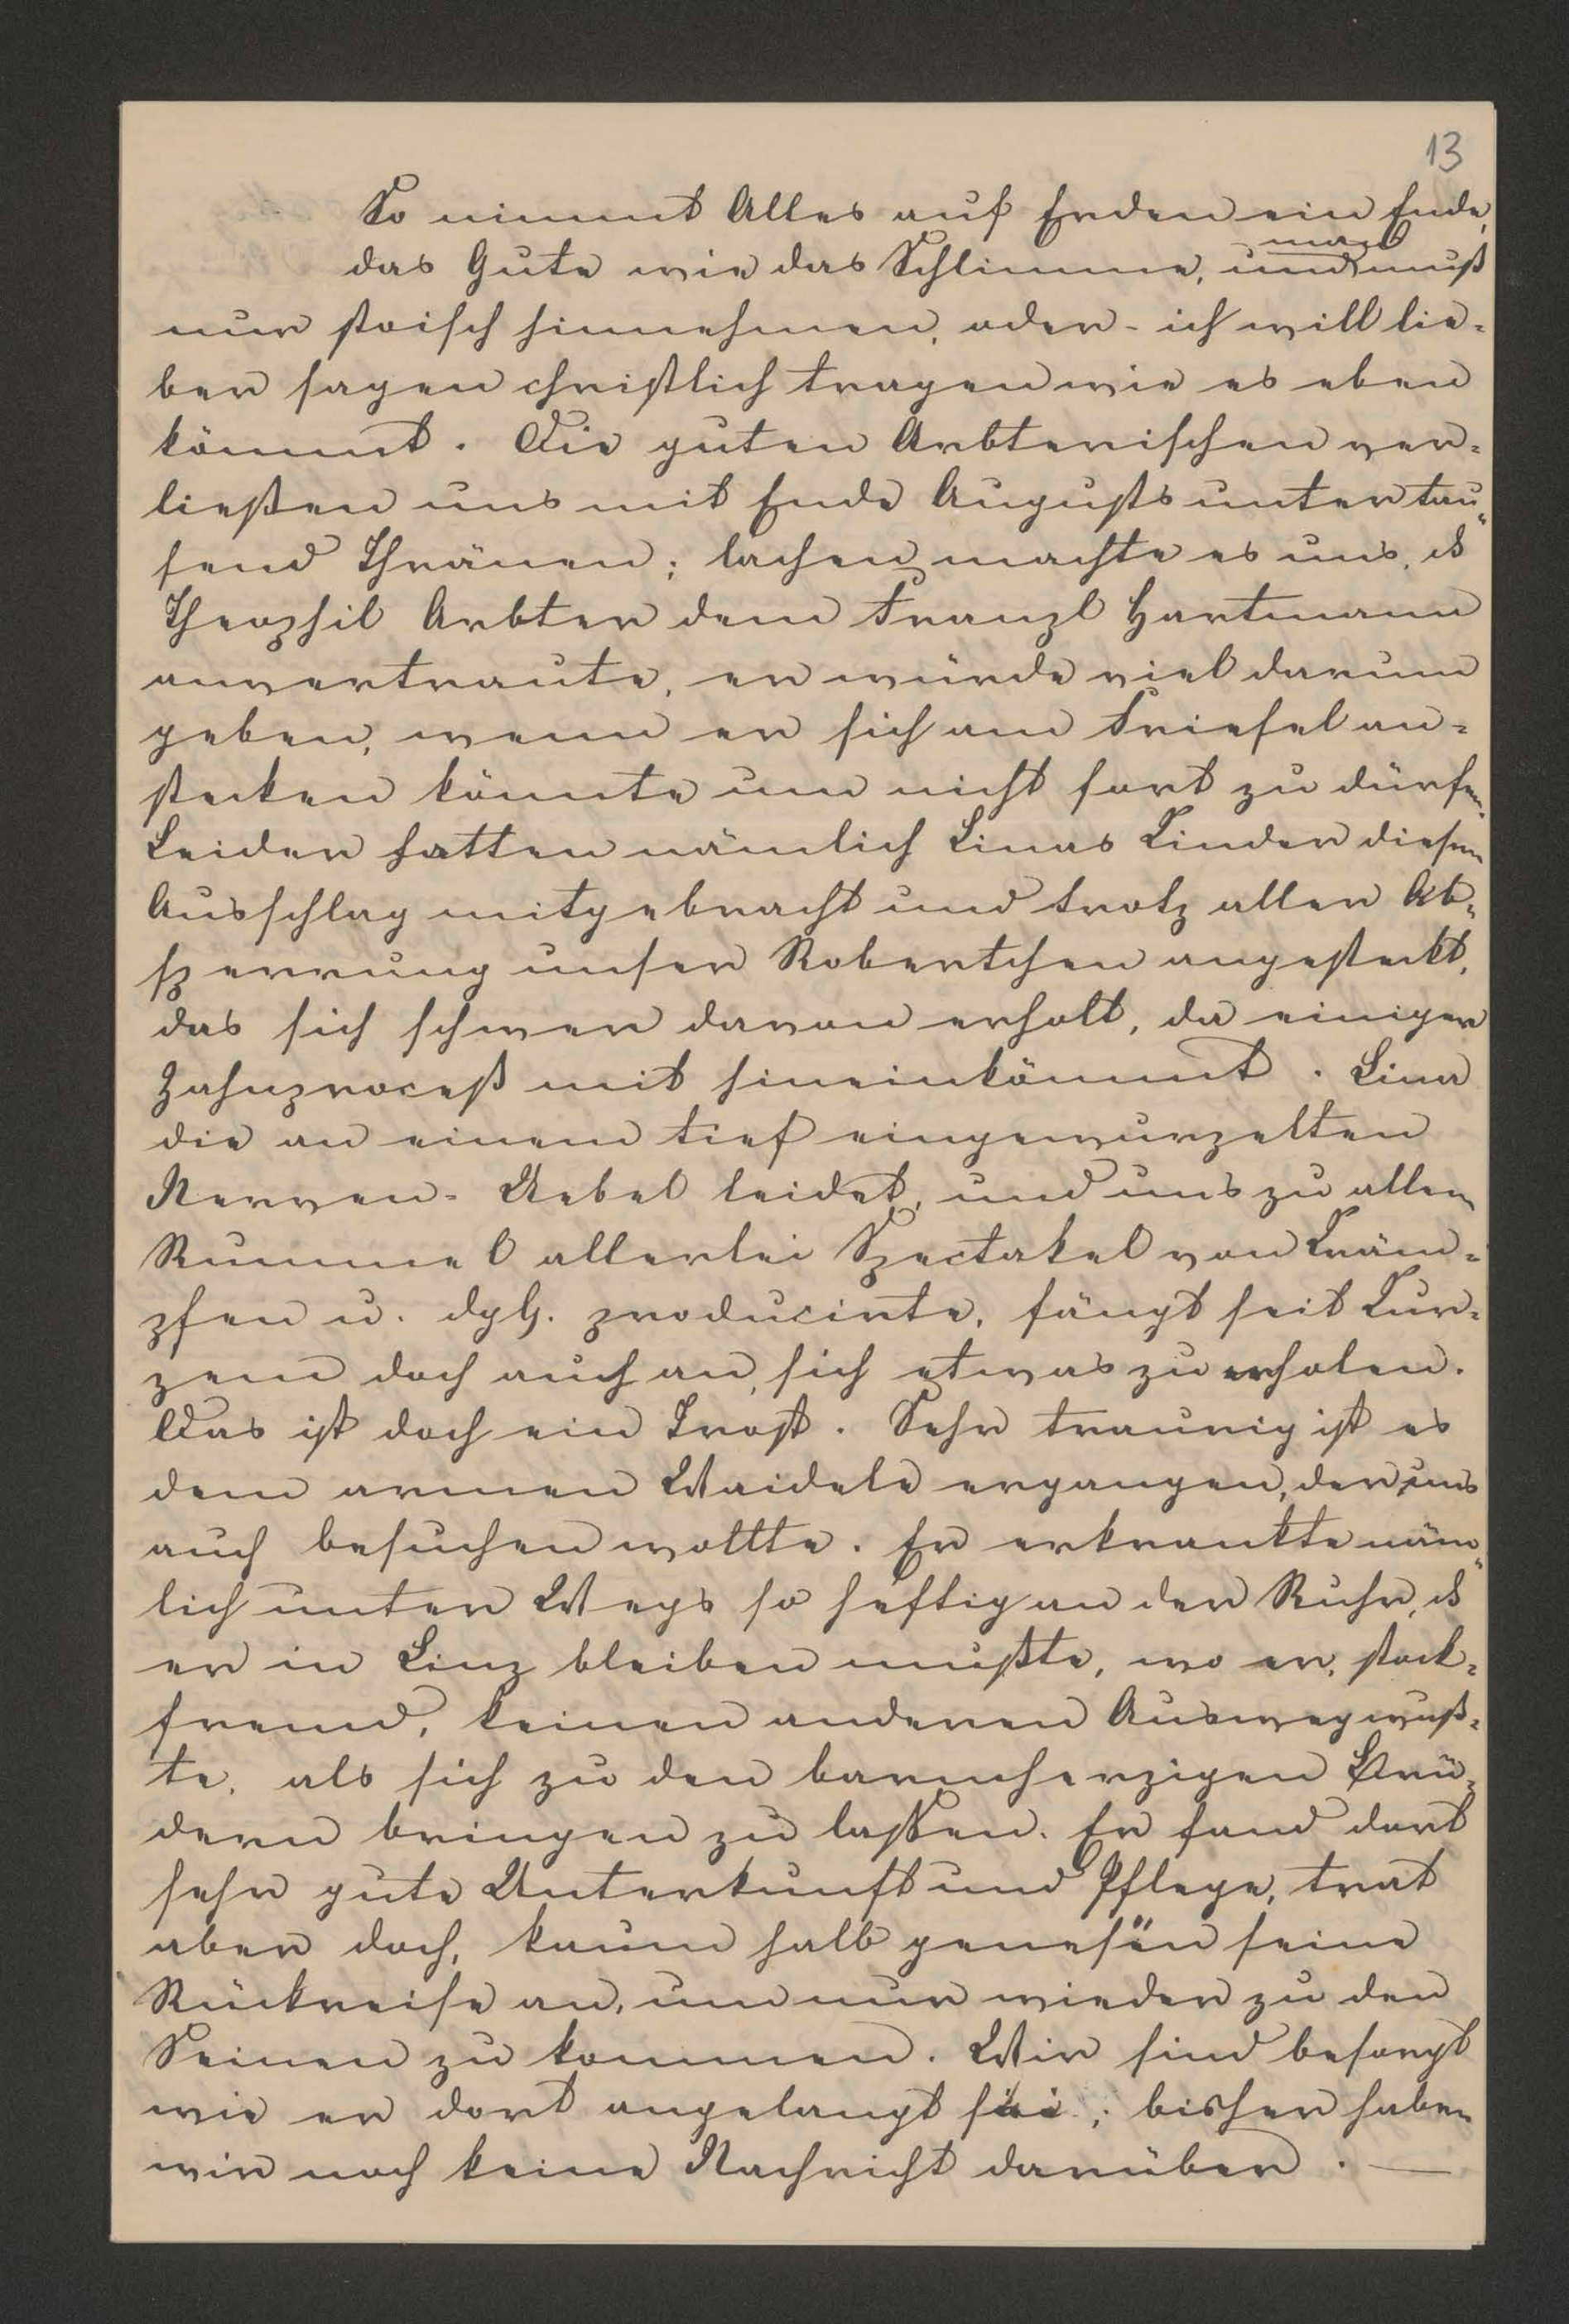 13
So nimmt Alles auf Erden ein Ende,
man
das Gute wie das Schlimme, und muß
nur stoisch hinnehmen, oder - ich will lie-
ber sagen christlich tragen wie es eben
kömmt. Die guten Arbterischen ver-
ließen uns mit Ende Augusts unter tau-
send Thränen; lachen machte es uns, ds
Theophil Arbter dem Franzl Hartmann
anvertraute, er würde viel darum
geben, wenn er sich am Friesel an-
stecken könnte um nicht fort zu dürfen.
Leider hatten nämlich Linas Kinder diesen
Ausschlag mitgebracht und trotz aller Ab-
sperrung unser Robertchen angesteckt,
das sich schwer davon erholt, da einiger
Zahnproceß mit hineinkömmt. Lina
die an einem tief eingewurzelten
Nerven-Uebel leidet, und uns zu allem
Rummel allerlei Spectakel von Kräm-
pfen u. dgl. producirte, fängt seit Kur-
zem doch auch an, sich etwas zu erholen.
Das ist doch ein Trost. Sehr traurig ist es
dem armen Waidele ergangen, der uns
auch besuchen wollte. Er erkrankte näm-
lich unter Wegs so heftig an der Ruhr, ds
er in Linz bleiben mußte, wo er, stock-
fremd, keinen anderen Ausweg wuß-
te, als sich zu den barmherzigen Brü-
dern bringen zu lassen. Er fand dort
sehr gute Unterkunft und Pflege, trat
aber doch, kaum halb genesen seine
Rückreise an, um nur wieder zu den
Seinen zu kommen. Wir sind besorgt
wie er dort angelangt sei; bisher haben
wir noch keine Nachricht darüber. —